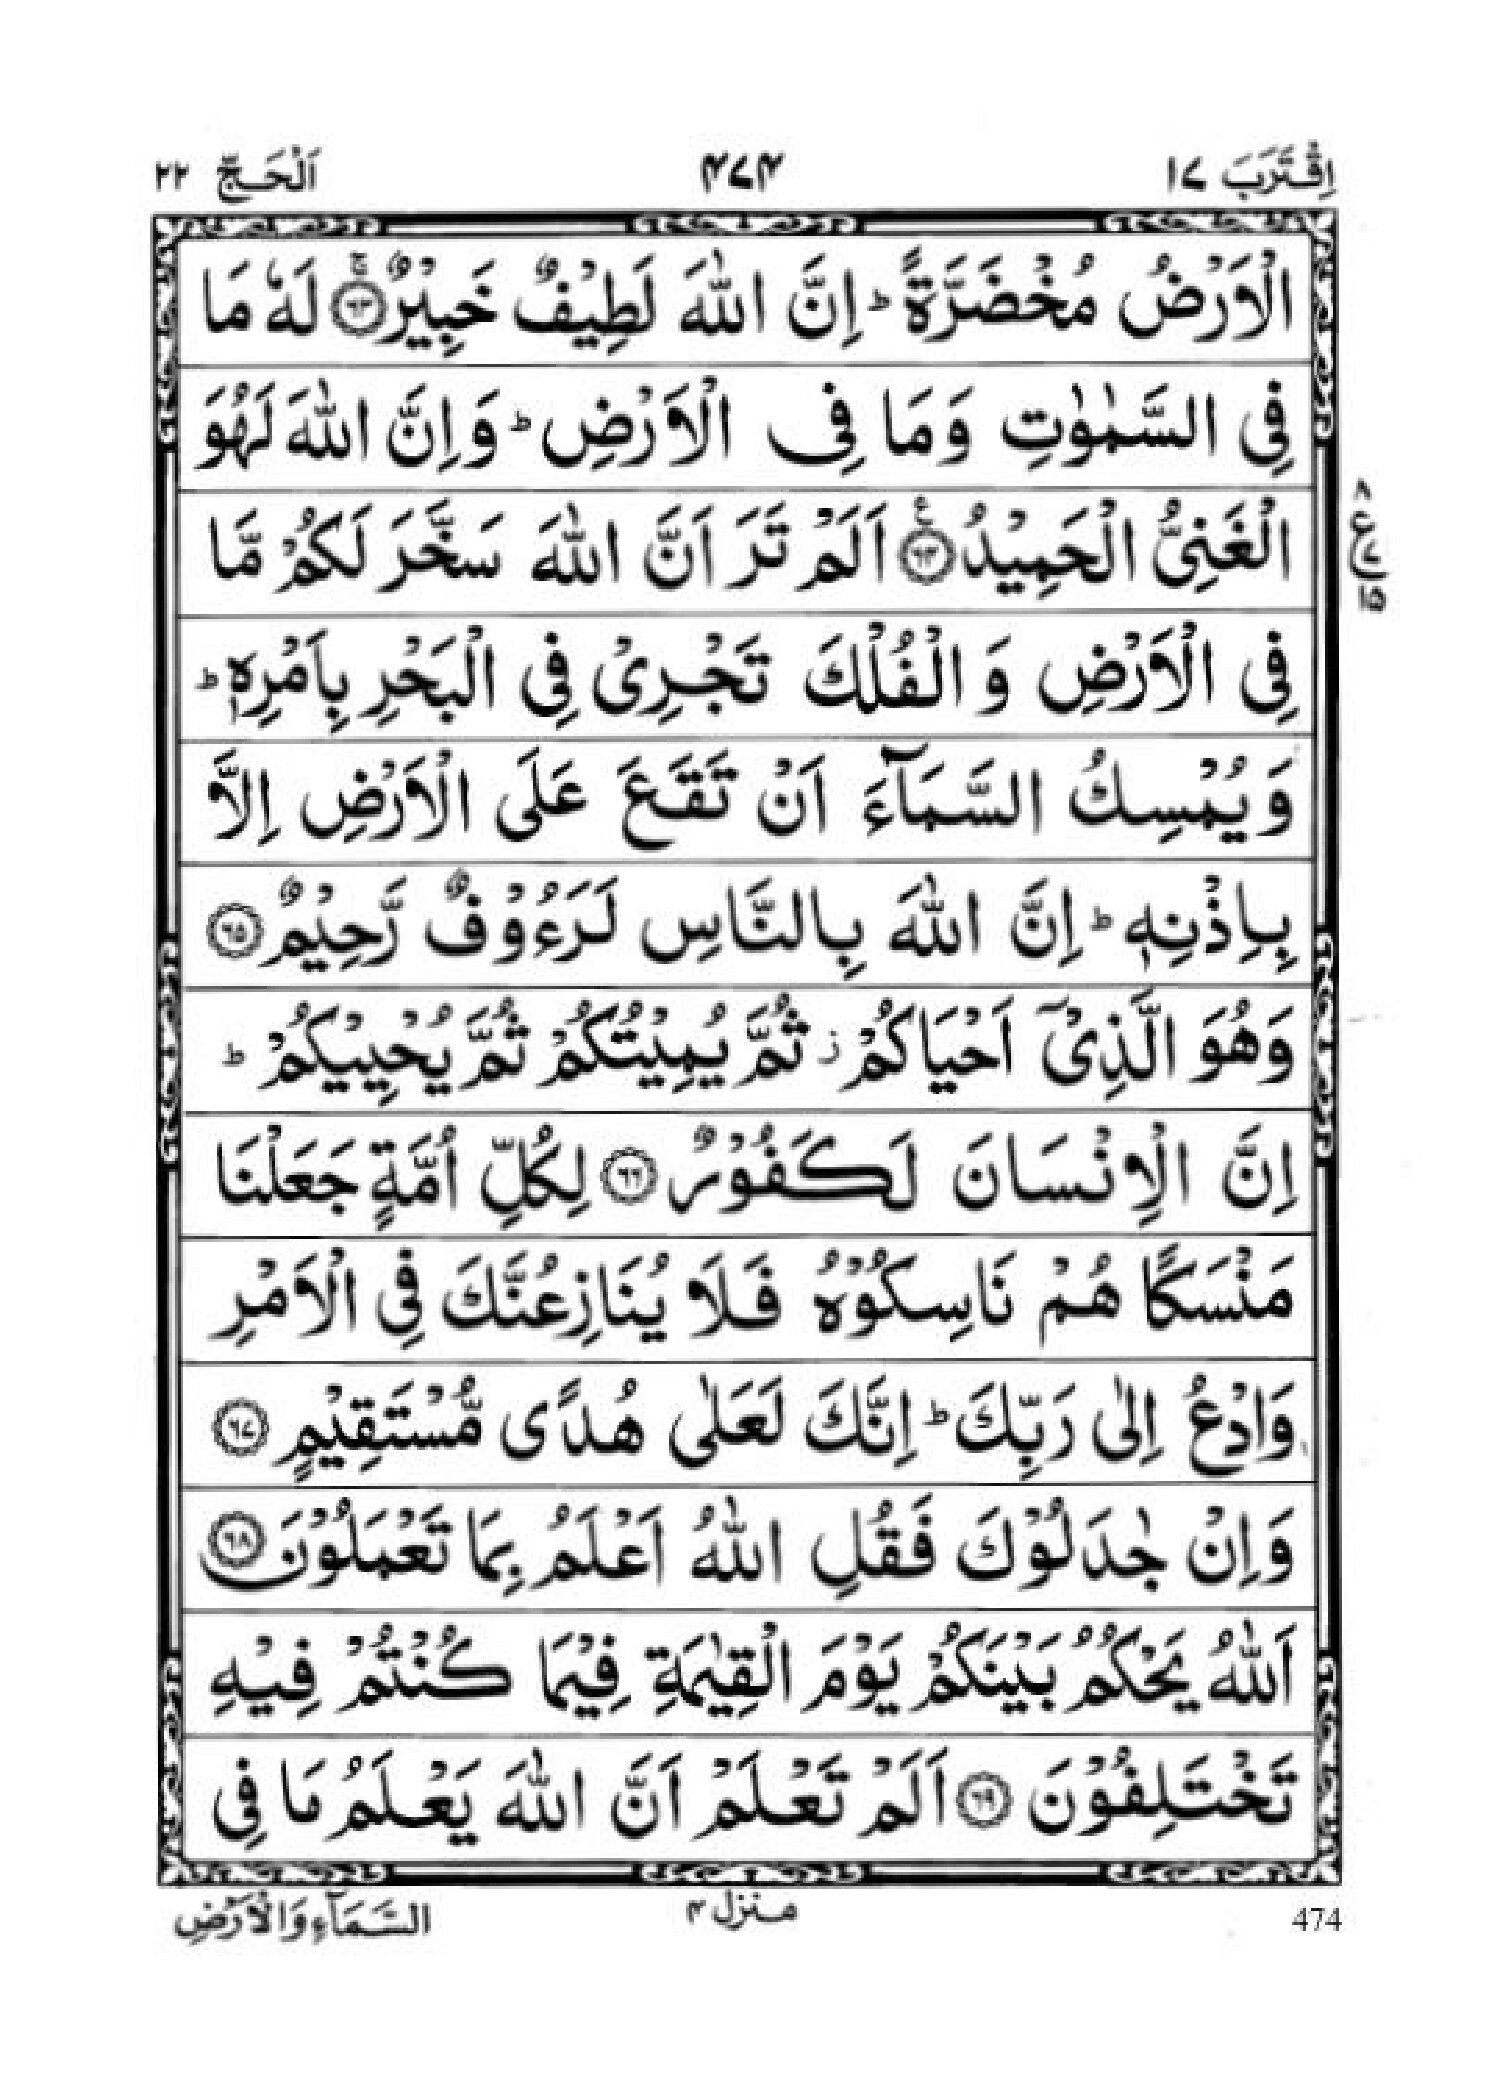 اِقْتَرَبَ ١٧
٤٧٤
اَلْحَجّ ٢٢
الْاَرْضُ مُخْضَرَّةً ؕ اِنَّ اللّٰهَ لَطِيْفٌ خَبِيْرٌ ۚ ﴿٦٣﴾ لَهٗ مَا
فِي السَّمٰوٰتِ وَمَا فِي الْاَرْضِ ؕ وَاِنَّ اللّٰهَ لَهُوَ
الْغَنِيُّ الْحَمِيْدُ ﴿٦٤﴾ اَلَمْ تَرَ اَنَّ اللّٰهَ سَخَّرَ لَكُمْ مَّا
فِي الْاَرْضِ وَ الْفُلْكَ تَجْرِيْ فِي الْبَحْرِ بِاَمْرِهٖ ؕ
وَيُمْسِكُ السَّمَآءَ اَنْ تَقَعَ عَلَى الْاَرْضِ اِلَّا
بِاِذْنِهٖ ؕ اِنَّ اللّٰهَ بِالنَّاسِ لَرَءُوْفٌ رَّحِيْمٌ ﴿٦٥﴾
وَهُوَ الَّذِيْۤ اَحْيَاكُمْ ز ثُمَّ يُمِيْتُكُمْ ثُمَّ يُحْيِيْكُمْ ؕ
اِنَّ الْاِنْسَانَ لَكَفُوْرٌ ﴿٦٦﴾ لِكُلِّ اُمَّةٍ جَعَلْنَا
مَنْسَكًا هُمْ نَاسِكُوْهُ فَلَا يُنَازِعُنَّكَ فِي الْاَمْرِ
وَادْعُ اِلٰى رَبِّكَ ؕ اِنَّكَ لَعَلٰى هُدًى مُّسْتَقِيْمٍ ﴿٦٧﴾
وَاِنْ جٰدَلُوْكَ فَقُلِ اللّٰهُ اَعْلَمُ بِمَا تَعْمَلُوْنَ ﴿٦٨﴾
اَللّٰهُ يَحْكُمُ بَيْنَكُمْ يَوْمَ الْقِيٰمَةِ فِيْمَا كُنْتُمْ فِيْهِ
تَخْتَلِفُوْنَ ﴿٦٩﴾ اَلَمْ تَعْلَمْ اَنَّ اللّٰهَ يَعْلَمُ مَا فِي
٨
ع
١٥
474
منزل ٤
السَّمَآءِ وَالْاَرْضِ